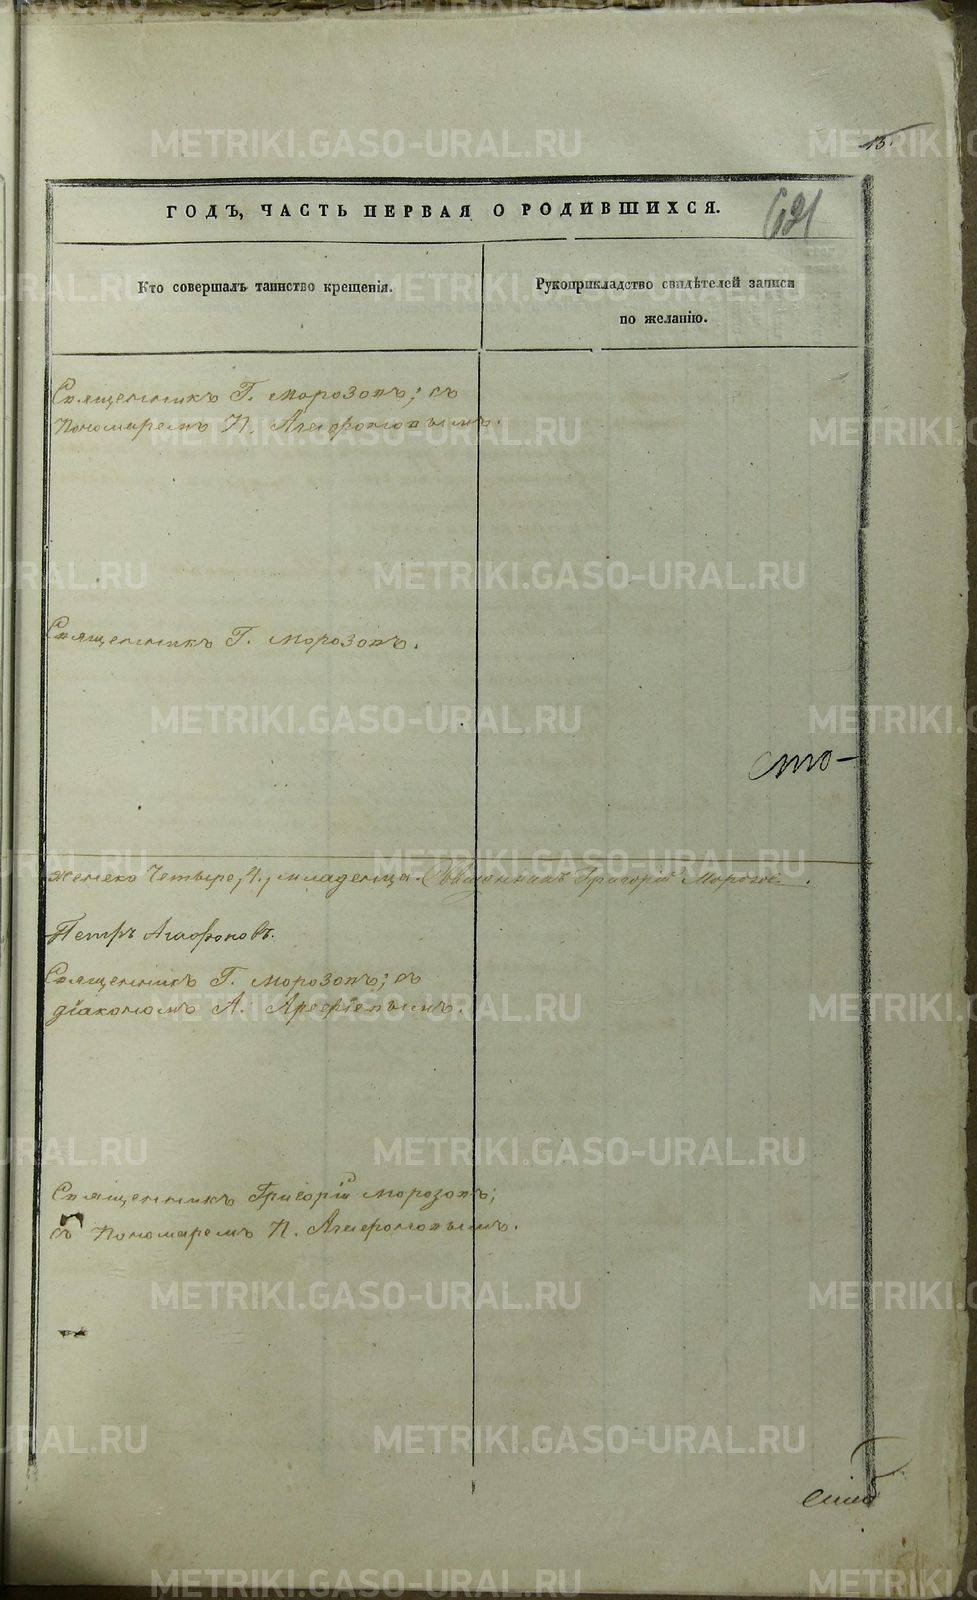 13.
ГОДЪ, ЧАСТЬ ПЕРВАЯ О РОДИВШИХСЯ.
621
Кто совершалъ таинство крещенія.
Рукоприкладство свидѣтелей записи
по желанію.
Священникъ Г. Морозовъ; съ
Пономаремъ П. Агафоновымъ.
Священникъ Г. Морозовъ.
сто-
женска Четыре, 4., младенца. Священникъ Григорій Морозовъ.
Петръ Агафоновъ.
Священникъ Г. Морозовъ; съ
діакономъ А. Арефіевымъ.
Священникъ Григорій Морозовъ;
съ Пономаремъ П. Агафоновымъ.
METRIKI.GASO-URAL.RU